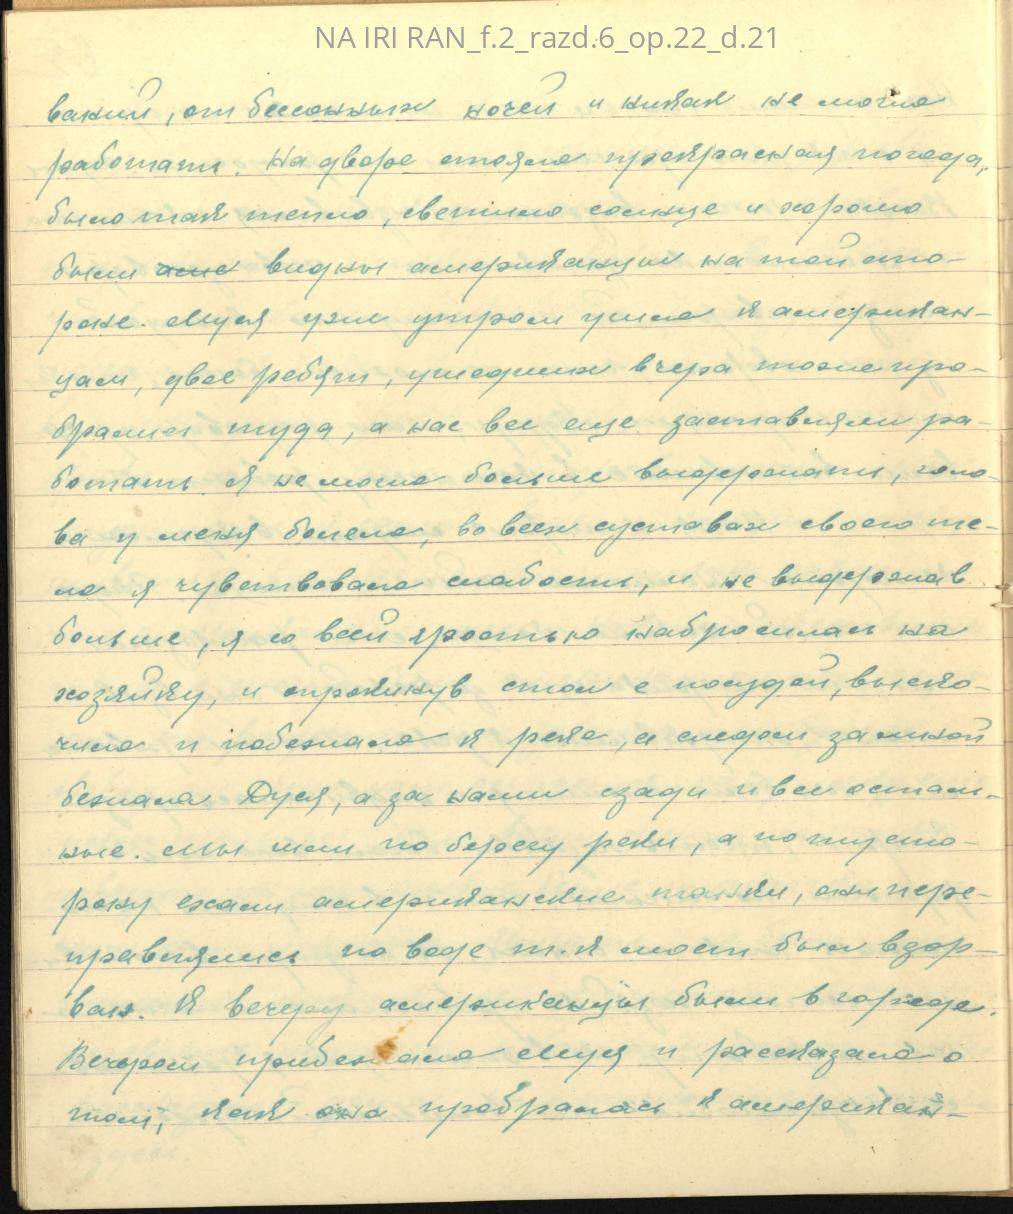 NA IRI RAN_f.2_razd.6_op.22_d.21
ваний, от бессонных ночей и никак не могла
работать. На дворе стояла прекрасная погода,
было так тепло, светило солнце и хорошо
были видны американцы на той сто-
роне. Муся утром ушла к американ-
цам, двое ребят, ушедших вчера тоже про-
брались туда, а нас все еще заставляли ра-
ботать. Я не могла больше выдержать, голо-
ва у меня болела, во всех суставах своего те-
ла я чувствовала слабость, и не выдержав
больше, я со всей яростью набросилась на
хозяйку, и опрокинув стол с посудой, выско-
чила и побежала к реке, а следом за мной
бежала Дуся, а за нами сзади и все осталь-
ные. Мы шли по берегу реки, а по ту сто-
рону ехали американские танки, они пере-
правлялись по воде т.к мост был взор-
ван. К вечеру американцы были в городе.
Вечером прибежала Муся и рассказала о
том, как она пробралась к американ-